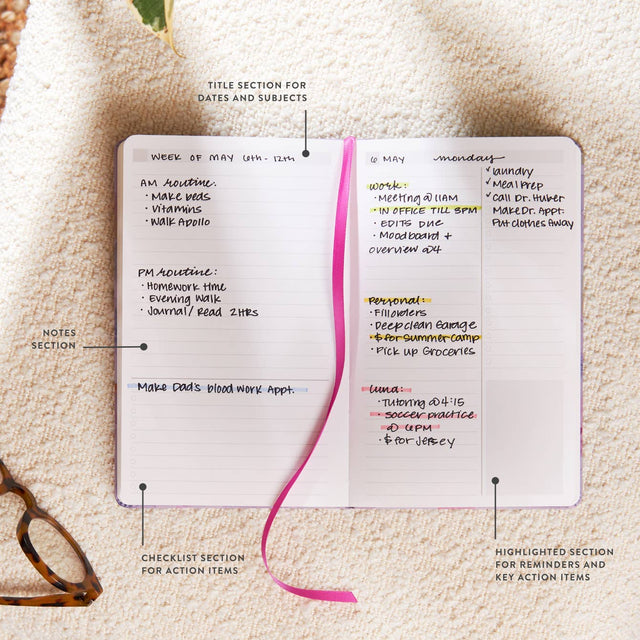 TITLE SECTION FOR
DATES AND SUBJECTS
WEEK OF MAY 6th - 12th
AM routine:
• Make beds
• Vitamins
• Walk Apollo
PM routine:
• Homework time
• Evening Walk
• Journal/Read 2HRS
NOTES
SECTION
Make Dad's blood work Appt.
CHECKLIST SECTION
FOR ACTION ITEMS
6 MAY monday
work:
• Meeting @ 11AM
• IN OFFICE TILL 3PM
• EDITS Due
• Moodboard +
overview @4
Personal:
• Fill orders
• Deep clean Garage
• $ for summer camp
• Pick up Groceries
Luna:
• Tutoring @ 4:15
• soccer practice
@ 6PM
• $ for Jersey
✓ laundry
✓ Meal Prep
✓ Call Dr. Huber
Make Dr. Appt.
Put Clothes Away
HIGHLIGHTED SECTION
FOR REMINDERS AND
KEY ACTION ITEMS